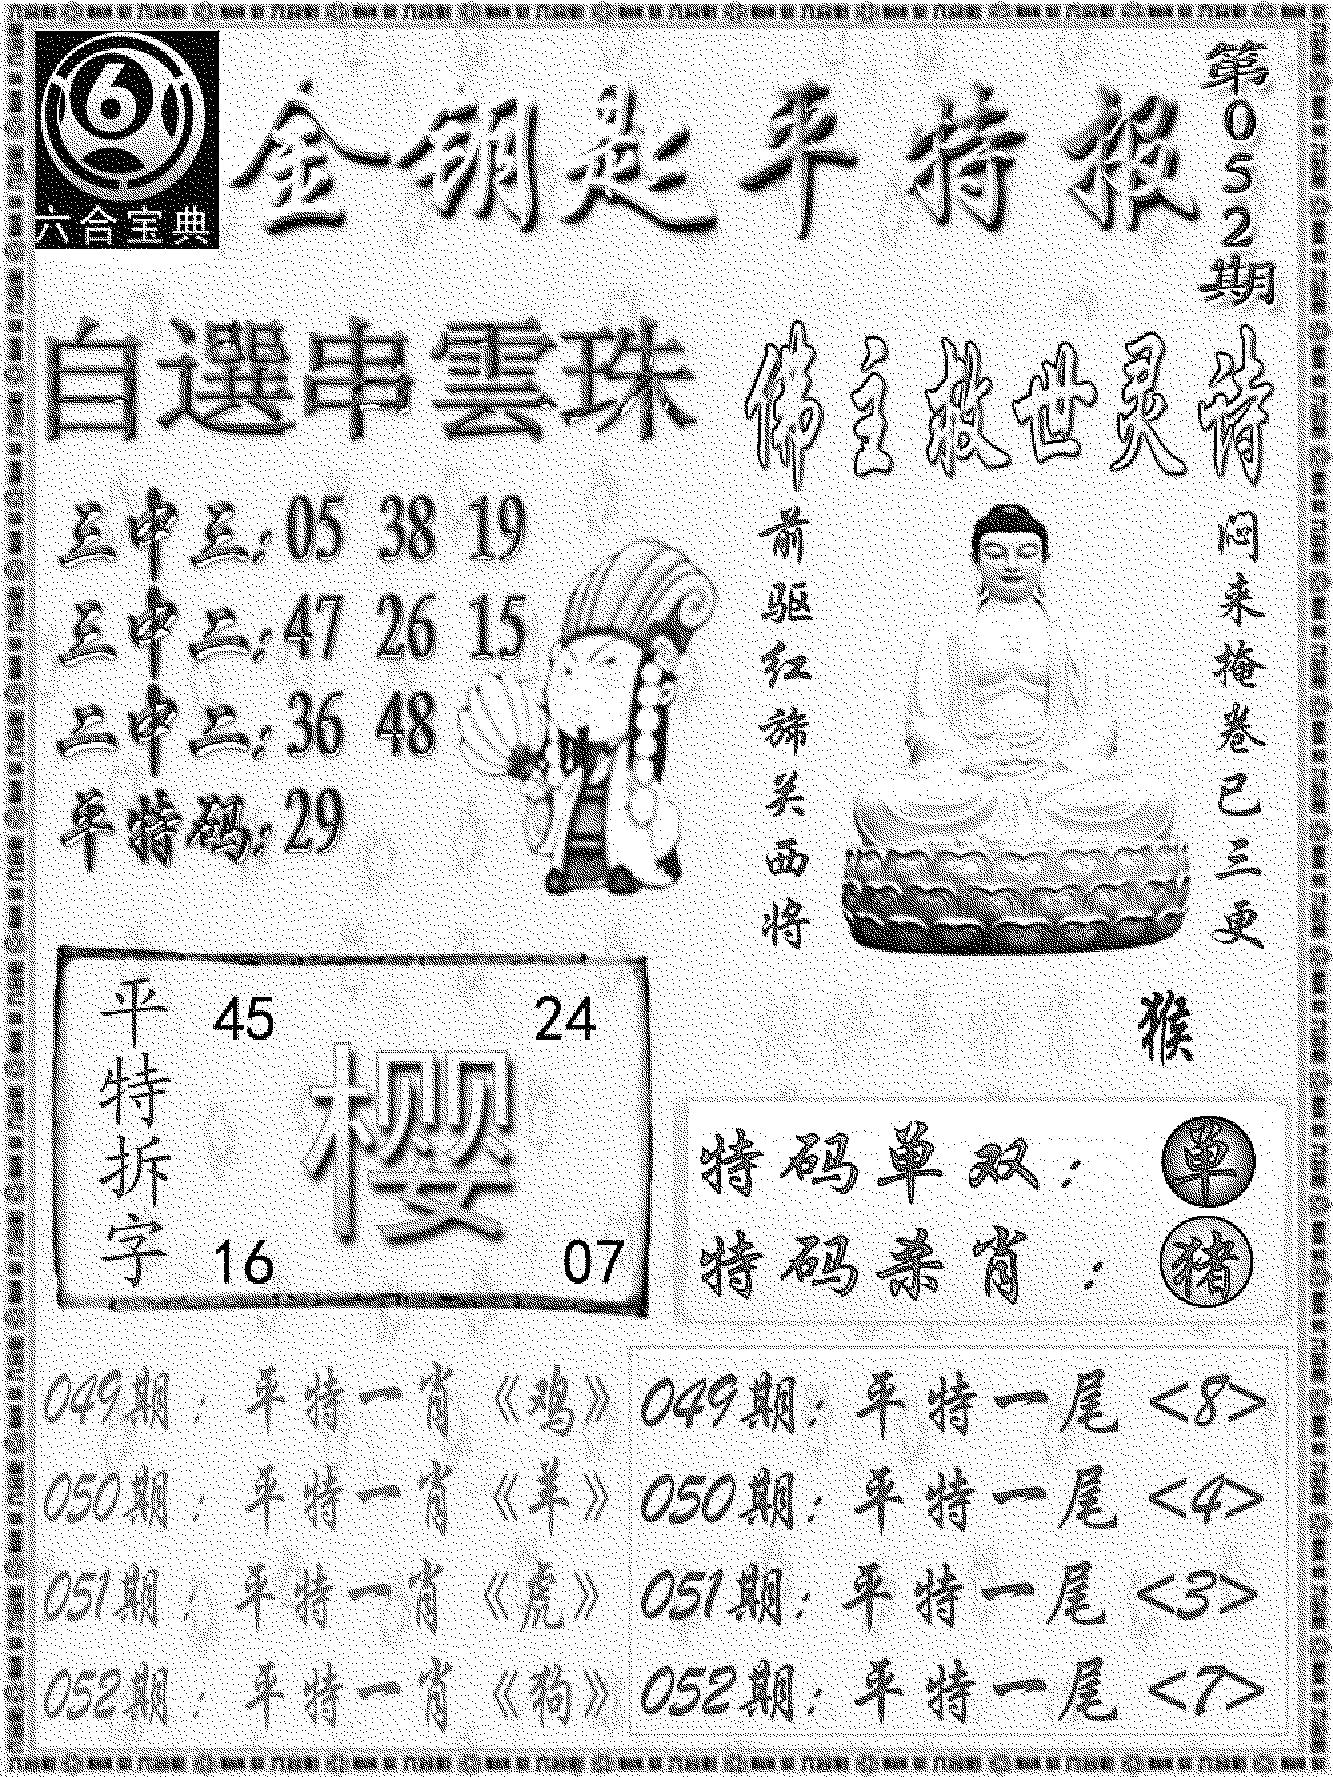 6
六合宝典
金钥匙平特报
第052期
自選串雲珠
三中三:05 38 19
三中二:47 26 15
二中二:36 48
平特码:29
佛主救世灵诗
闷来掩卷已三更
前驱红旆关西将
猴
平特拆字
45 24
樱
16 07
特码单双:单
特码杀肖:猪
049期:平特一肖《鸡》
050期:平特一肖《羊》
051期:平特一肖《虎》
052期:平特一肖《狗》
049期:平特一尾<8>
050期:平特一尾<4>
051期:平特一尾<3>
052期:平特一尾<7>